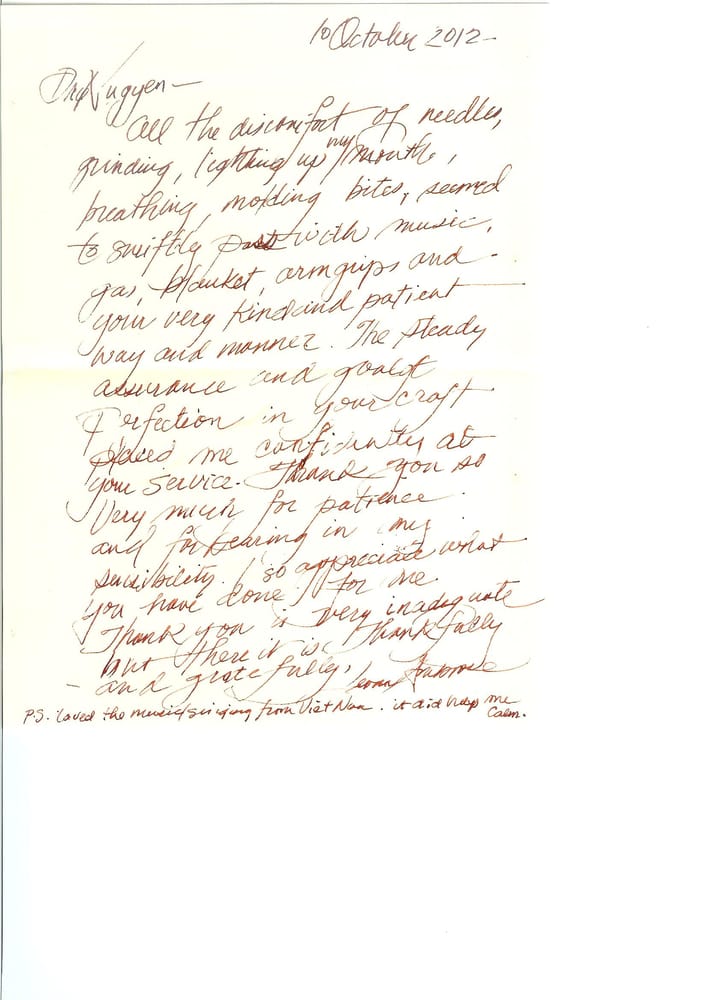 10 October 2012-
Dr. Nugyen-
All the discomfort of needles,
grinding, lighting up my mouth,
breathing, molding bites, seemed
to swiftly with music,
gas, blanket, armgrips and
your very kind and patient
way and manner. The steady
assurance and goal of
Perfection in your craft
placed me confidently at
your service. Thank you so
Very much for patience
and forbearing in my
sensibility. I so appreciate what
you have done for me.
Thank you is very inadequate
but there it is. Thankfully
- and gratefully,
P.S. loved the music/singing from Viet Nam. it did help me
Calm.